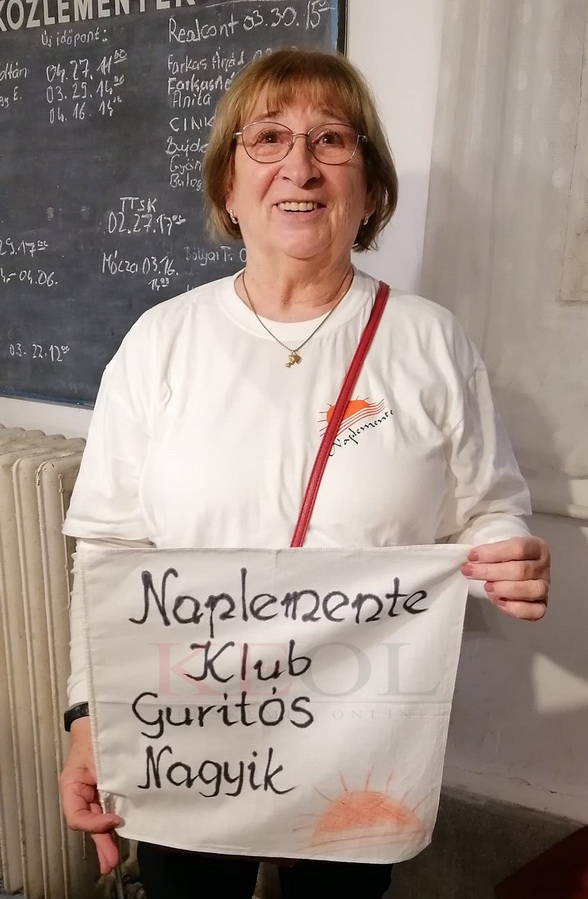 KÖZLEMÉNYEK
Új időpont:
04.27. 11⁰⁰
03.29. 14
04.16. 14
Realcont 03.30. 15
Farkas Árpád
Farkasné
Anita
CINK
TTSK
02.27. 17⁰⁰
Mócza 03.16.
29. 17⁰⁰
04.06.
03. 22. 12⁰⁰
Naplemente
Naplemente
Klub
Guritós
Nagyik
KEOL
ONLINE